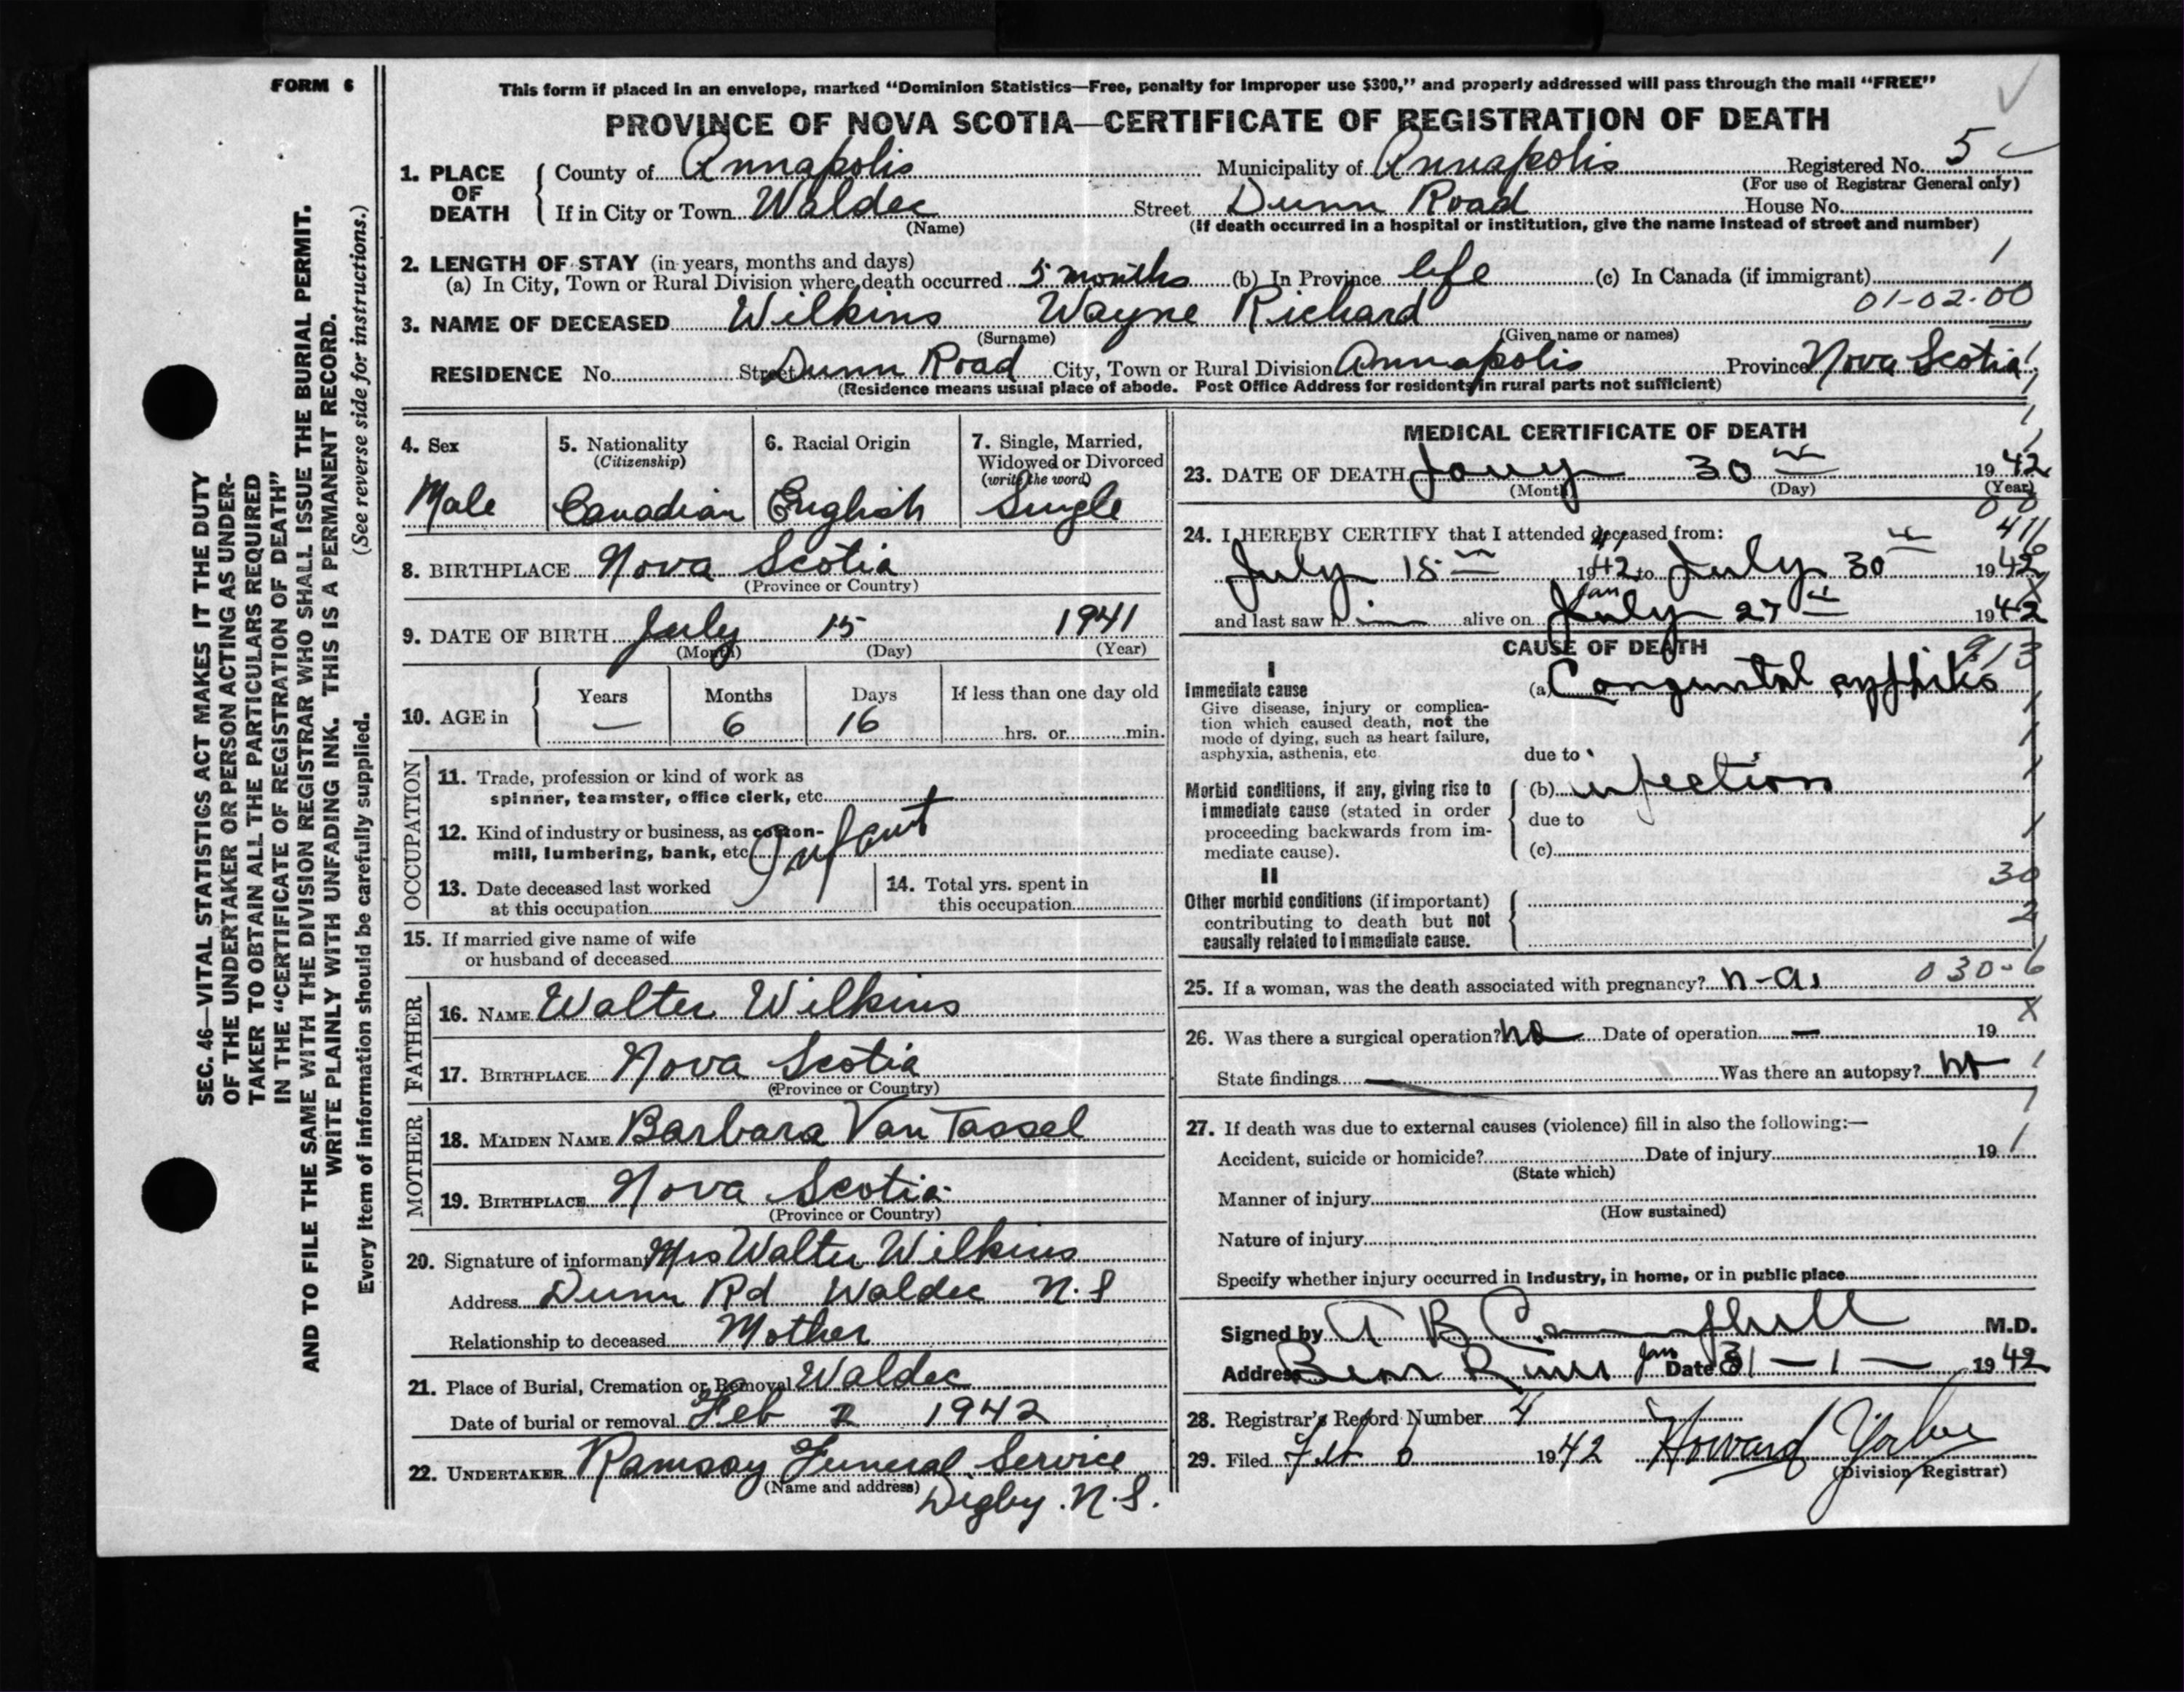 FORM 6
This form if placed in an envelope, marked “Dominion Statistics—Free, penalty for improper use $300,” and properly addressed will pass through the mail “FREE”
PROVINCE OF NOVA SCOTIA—CERTIFICATE OF REGISTRATION OF DEATH
SEC. 46—VITAL STATISTICS ACT MAKES IT THE DUTY
OF THE UNDERTAKER OR PERSON ACTING AS UNDER-
TAKER TO OBTAIN ALL THE PARTICULARS REQUIRED
IN THE “CERTIFICATE OF REGISTRATION OF DEATH”
AND TO FILE THE SAME WITH THE DIVISION REGISTRAR WHO SHALL ISSUE THE BURIAL PERMIT.
WRITE PLAINLY WITH UNFADING INK. THIS IS A PERMANENT RECORD.
Every item of information should be carefully supplied. (See reverse side for instructions.)
1. PLACE OF DEATH County of Annapolis Municipality of Annapolis Registered No. 5
(For use of Registrar General only)
If in City or Town Waldec Street Dunn Road House No.
(Name) (If death occurred in a hospital or institution, give the name instead of street and number)
2. LENGTH OF STAY (in years, months and days) 1
(a) In City, Town or Rural Division where death occurred 5 months (b) In Province life (c) In Canada (if immigrant)
01-02-00
3. NAME OF DECEASED Wilkins Wayne Richard
(Surname) (Given name or names)
RESIDENCE No. Street Dunn Road City, Town or Rural Division Annapolis Province Nova Scotia
(Residence means usual place of abode. Post Office Address for residents in rural parts not sufficient)
4. Sex
Male
5. Nationality
(Citizenship)
Canadian
6. Racial Origin
English
7. Single, Married,
Widowed or Divorced
(write the word)
Single
8. BIRTHPLACE Nova Scotia
(Province or Country)
9. DATE OF BIRTH July 15 1941
(Month) (Day) (Year)
10. AGE in Years Months Days If less than one day old
— 6 16 hrs. or min.
OCCUPATION
11. Trade, profession or kind of work as
spinner, teamster, office clerk, etc.
12. Kind of industry or business, as cotton-
mill, lumbering, bank, etc. Infant
13. Date deceased last worked
at this occupation
14. Total yrs. spent in
this occupation
15. If married give name of wife
or husband of deceased
FATHER
16. NAME Walter Wilkins
17. BIRTHPLACE Nova Scotia
(Province or Country)
MOTHER
18. MAIDEN NAME Barbara Van Tassel
19. BIRTHPLACE Nova Scotia
(Province or Country)
20. Signature of informant Mrs Walter Wilkins
Address Dunn Rd Waldec N.S
Relationship to deceased Mother
21. Place of Burial, Cremation or Removal Waldec
Date of burial or removal Feb 1942
22. UNDERTAKER Ramsay Funeral Service
(Name and address) Digby. N.S.
MEDICAL CERTIFICATE OF DEATH
23. DATE OF DEATH Jany 30th 1942
(Month) (Day) (Year)
24. I HEREBY CERTIFY that I attended deceased from:
July 15th 1942 to July 30th 1942
Jan
and last saw him alive on July 27th 1942
CAUSE OF DEATH
I
Immediate cause
Give disease, injury or complica-
tion which caused death, not the
mode of dying, such as heart failure,
asphyxia, asthenia, etc
(a) Congenital syphilis
due to
Morbid conditions, if any, giving rise to
immediate cause (stated in order
proceeding backwards from im-
mediate cause).
(b) infection
due to
(c)
II
Other morbid conditions (if important)
contributing to death but not
causally related to immediate cause.
30
2
030-6
25. If a woman, was the death associated with pregnancy? n-a.
26. Was there a surgical operation? no Date of operation — 19 X
State findings — Was there an autopsy? no
27. If death was due to external causes (violence) fill in also the following:—
Accident, suicide or homicide? Date of injury 19
(State which)
Manner of injury
(How sustained)
Nature of injury
Specify whether injury occurred in industry, in home, or in public place
Signed by A B Campbell M.D.
Address Bear River Jan Date 31—1— 1942
28. Registrar's Record Number 4
29. Filed Feb 6 1942 Howard
(Division Registrar)